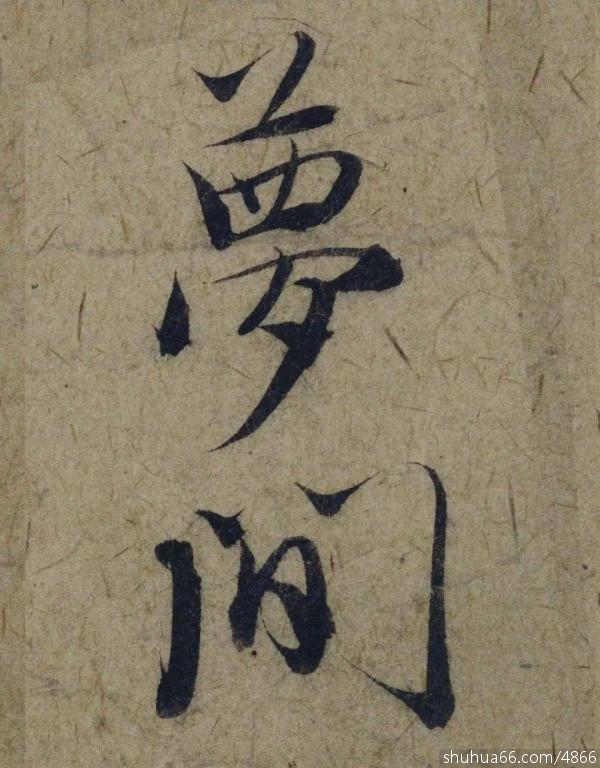 夢間
shuhua66.com/4866